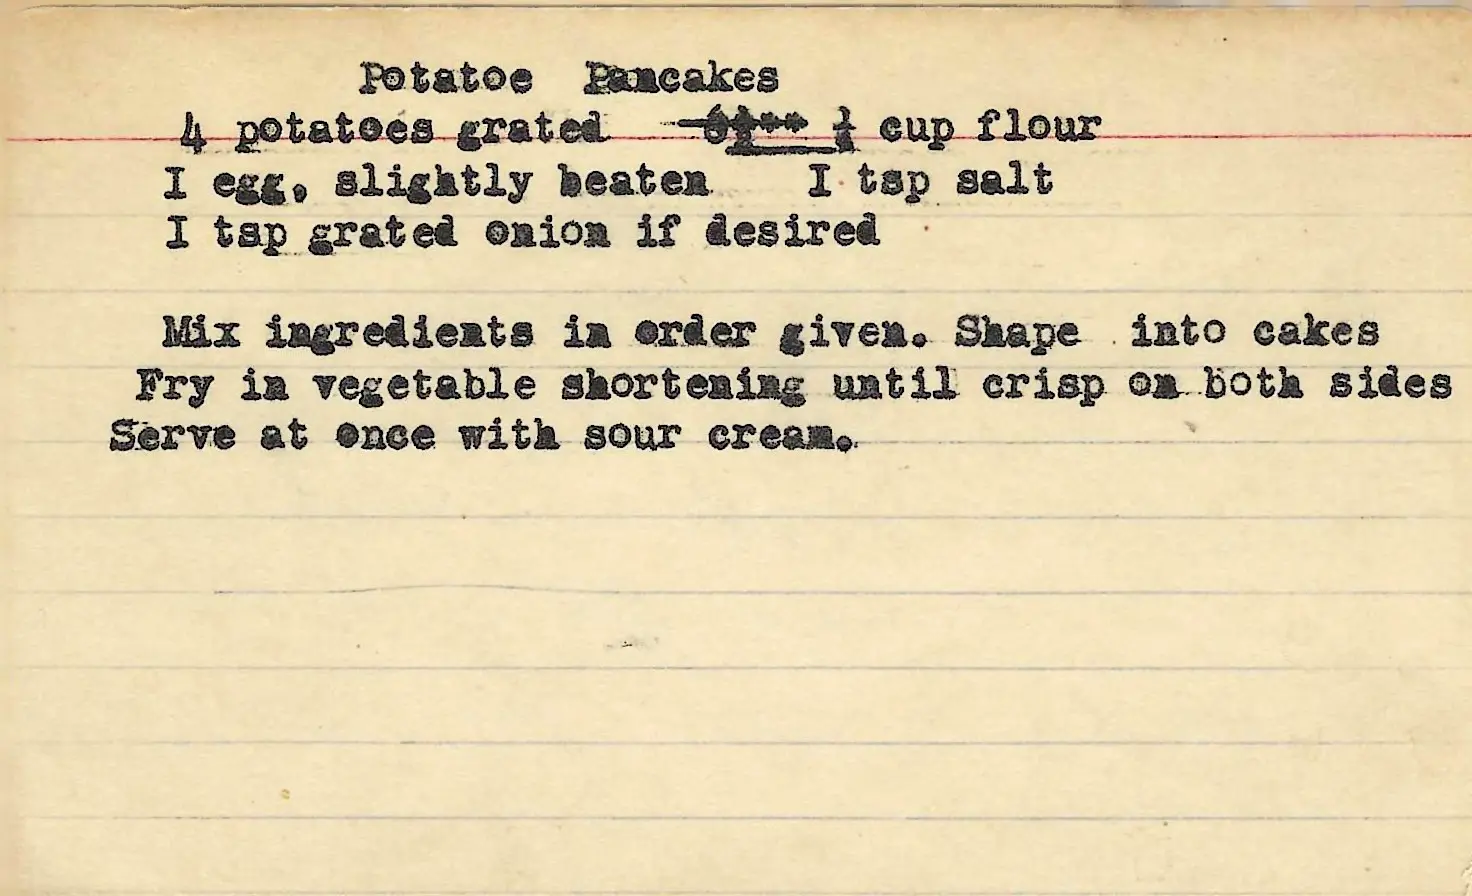 Potatoe Pancakes
4 potatoes grated cup flour
I egg, slightly beaten I tsp salt
I tsp grated onion if desired
Mix ingredients in order given. Shape into cakes
Fry in vegetable shortening until crisp on both sides
Serve at once with sour cream.